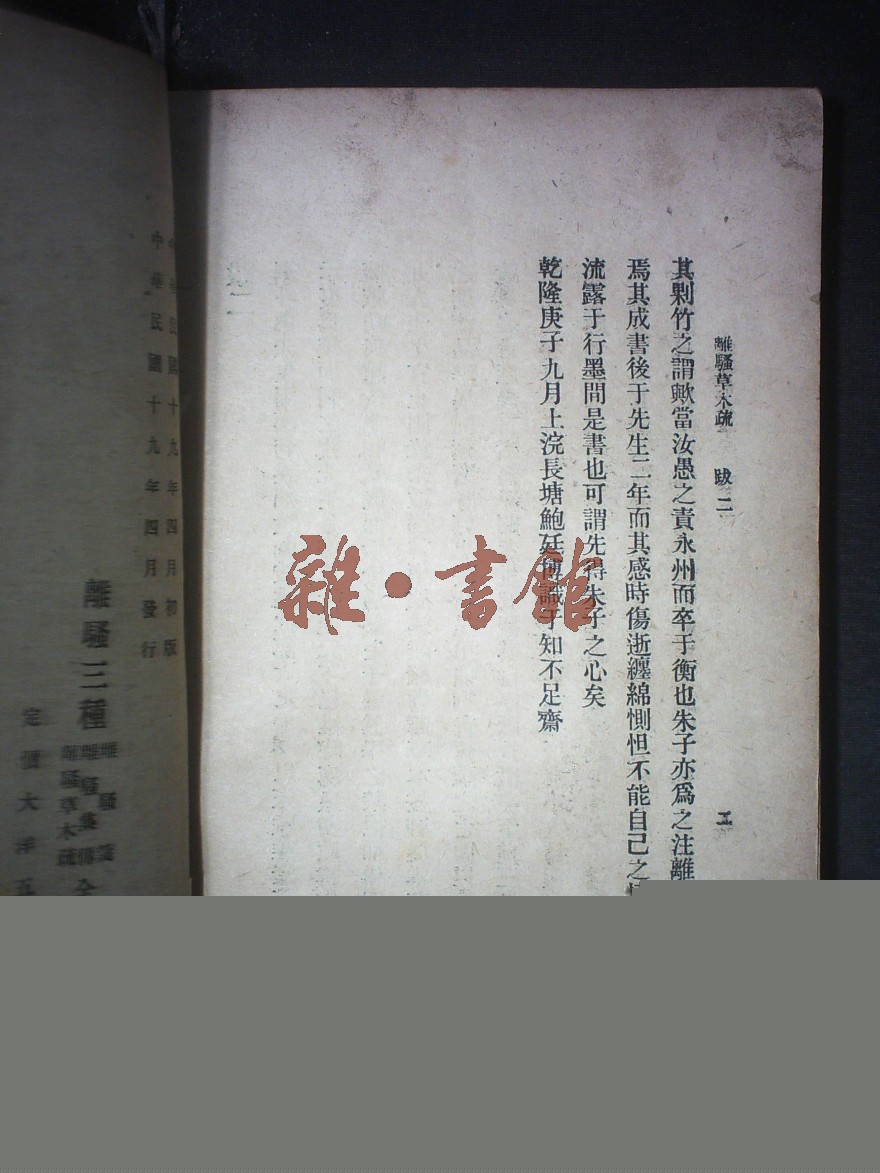 離騷草木疏 跋二 二
其剿竹之謂歟當汝愚之責永州而卒于衡也朱子亦爲之注離
焉其成書後于先生二年而其感時傷逝纏綿惻怛不能自已之
流露于行墨間是書也可謂先得朱子之心矣
乾隆庚子九月上浣長塘鮑廷博識于知不足齋
雜·書館
中華民國十九年四月初版
中華民國十九年四月發行
離騷三種
離騷
離騷集傳
離騷草木疏
全
定價大洋五